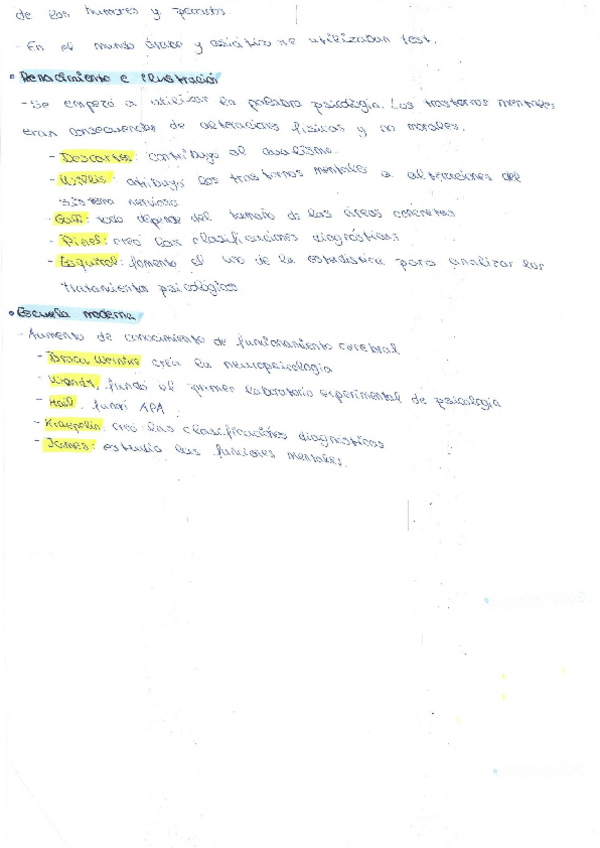 de los humores y pecados.
- En el mundo árabe y asiático se utilizaban test.
• Renacimiento e Ilustración
- Se empezó a utilizar la palabra psicología. Los trastornos mentales
eran consecuencias de alteraciones físicas y no morales.
- Descartes: contribuyo al dualismo.
- Willis: atribuyó los trastornos mentales a alteraciones del
sistema nervioso
- Gall: todo depende del tamaño de las áreas concretas
- Pinel: creó las clasificaciones diagnósticas
- Esquirol: fomento el uso de la estadística para analizar los
tratamientos psicológicos
• Escuela moderna
- Aumento de conocimiento de funcionamiento cerebral
- Broca Wernike crea la neuropsicologia
- Wundt, fundó el primer laboratorio experimental de psicología
- Hall: fundó APA
- Kraepelin: creó las clasificaciónes diagnósticas
- James: estudia las funciones mentales.